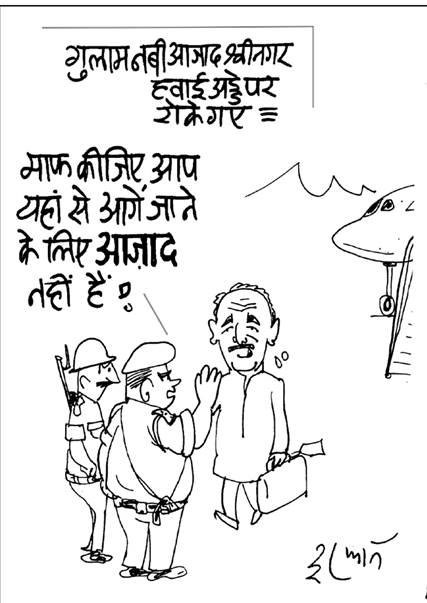 गुलाम नबी आजाद श्रीनगर
हवाई अड्डे पर
रोके गए
माफ कीजिए, आप
यहां से आगे जाने
के लिए आज़ाद
नहीं हैं !